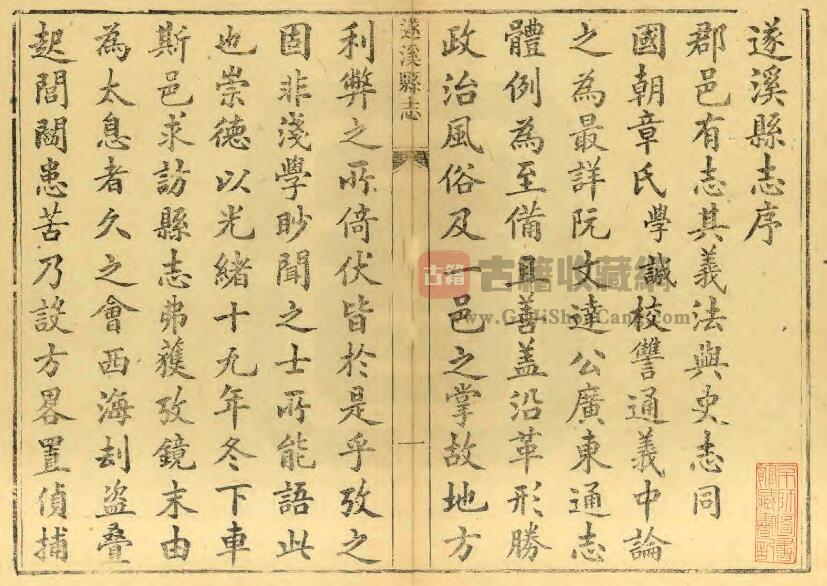 遂溪縣志序
郡邑有志其義法與史志同
國朝章氏學誠校讐通義中論
之為最詳阮文達公廣東通志
體例為至備且善盖沿革形勝
政治風俗及一邑之掌故地方
遂溪縣志
一
利弊之所倚伏皆於是乎攷之
固非淺學眇聞之士所能語此
也崇德以光緒十九年冬下車
斯邑求訪縣志弗獲攷鏡末由
為太息者久之會西海刦盗叠
起閭閻患苦乃設方畧置偵捕
古籍
古籍收藏網